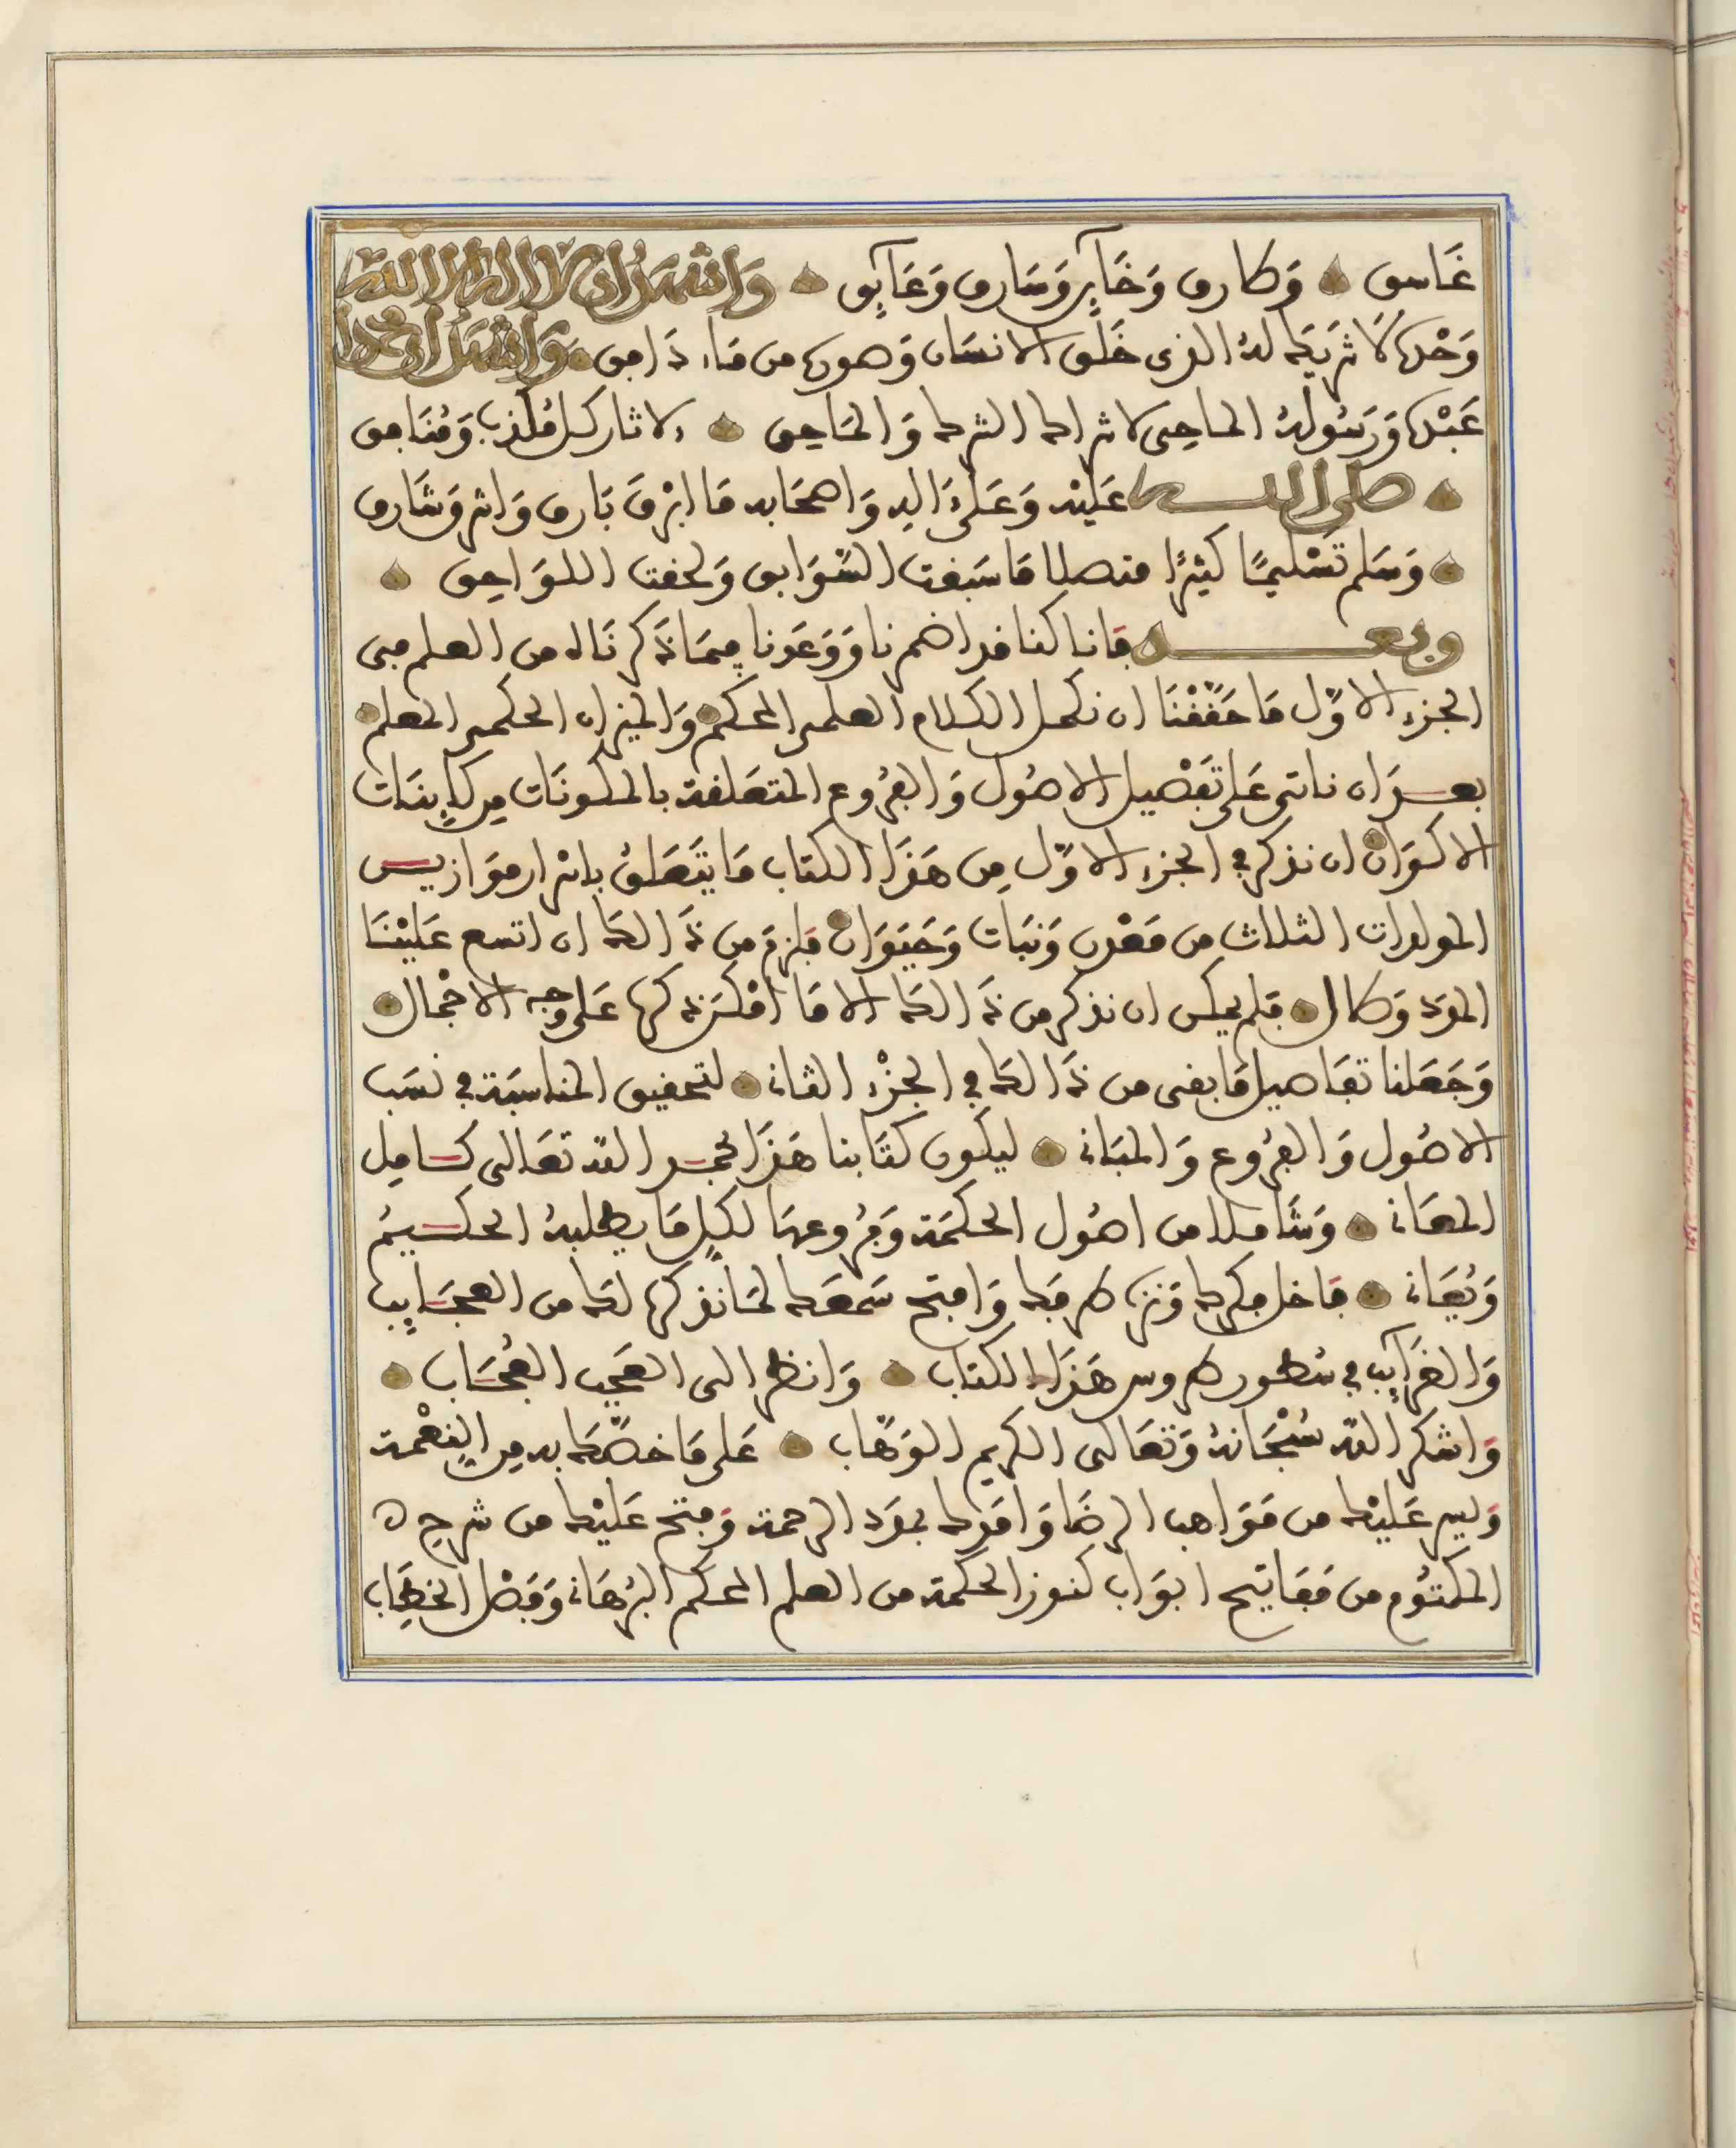 غَاسق وَطارق وَخَايِن وَسَارق وَعَايِق وَاشهَدُ ان لا اله الا الله
وَحْدَهُ لَا شريَك لهُ الذى خَلَق الانسَان وَصورهُ من مَاء دَافق وَاشهَدُ ان محمدا
عَبْدهُ وَرَسُولهُ الماحِى لاشراك الشرك وَالمَاحق لاثار كل مُكذب وَمُنَافق
صلى الله عَليْه وَعَلىَ الِه وَاصحَابه مَا ابْرَقَ بَارق وَاشرَق شَارق
وَسَلم تَسْليمًا كثيرًا متصلا مَا سَبقت السَّوَابق وَلحقت اللوَاحِق
وبعد فانا كنا قد اضمرنا وَوَعَدنا فِيمَا ذَكرنَاه من العلم فى
الجزء الاوّل مَا حَقّقْنَا ان نكمل الكلام العلمى المحكم وَالميزان الحكمى المعلم
بعد ان ناتى عَلى تَفْصيل الاصُول وَالفرُوع المتعَلقة بالمكونَات مِن كاينَات
الاكوَان ان نذكر فى الجزء الاوّل مِن هَذَا الكتاب مَا يتَعَلقُ باسْرار مَوَازين
المولدات الثلاث من مَعْدن وَنبَات وَحَيَوَان فلزمَ من ذَالك ان اتسع عَليْنَا
المَدد وَطال فلم يمكن ان نذكر من ذَالك الا مَا امْكَن ذكرهُ عَلى وَجه الاجْمال
وَجَعَلنا تفَاصيل مَا بقى من ذَالك فى الجزْء الثانى لتحقيق المناسبَة فى نسَب
الاصُول وَالفرُوع وَالمبَانى ليكون كتَابنا هَذَا بحمد الله تعَالى كامِل
المعَانى وَشَاملا من اصُول الحكمَة وَفرُوعهَا لكلِ مَا يطلبهُ الحكيمُ
وَيُعَانى فاخل فكرك وَنزه طرفَك وَافتح سَمعَك لمَا نذكرهُ لك من العجَايِب
وَالغرَايِب فى سُطور طروس هَذَا الكتاب وَانظر الى العَجب العُجَاب
وَاشكر الله سُبْحَانهُ وَتعَالى الكريم الوَهّاب عَلى مَا خصّك به مِن النِعْمة
وَيسر عَليْك من مَوَاهب الرضَا وَامَدك بمَدد الرحمة وَفتح عَليْك من شرح
المكتوُم من مَفَاتيح ابوَاب كنوز الحكمة من العلم المحكم البُرهَانى وَفَصْل الخطِاب